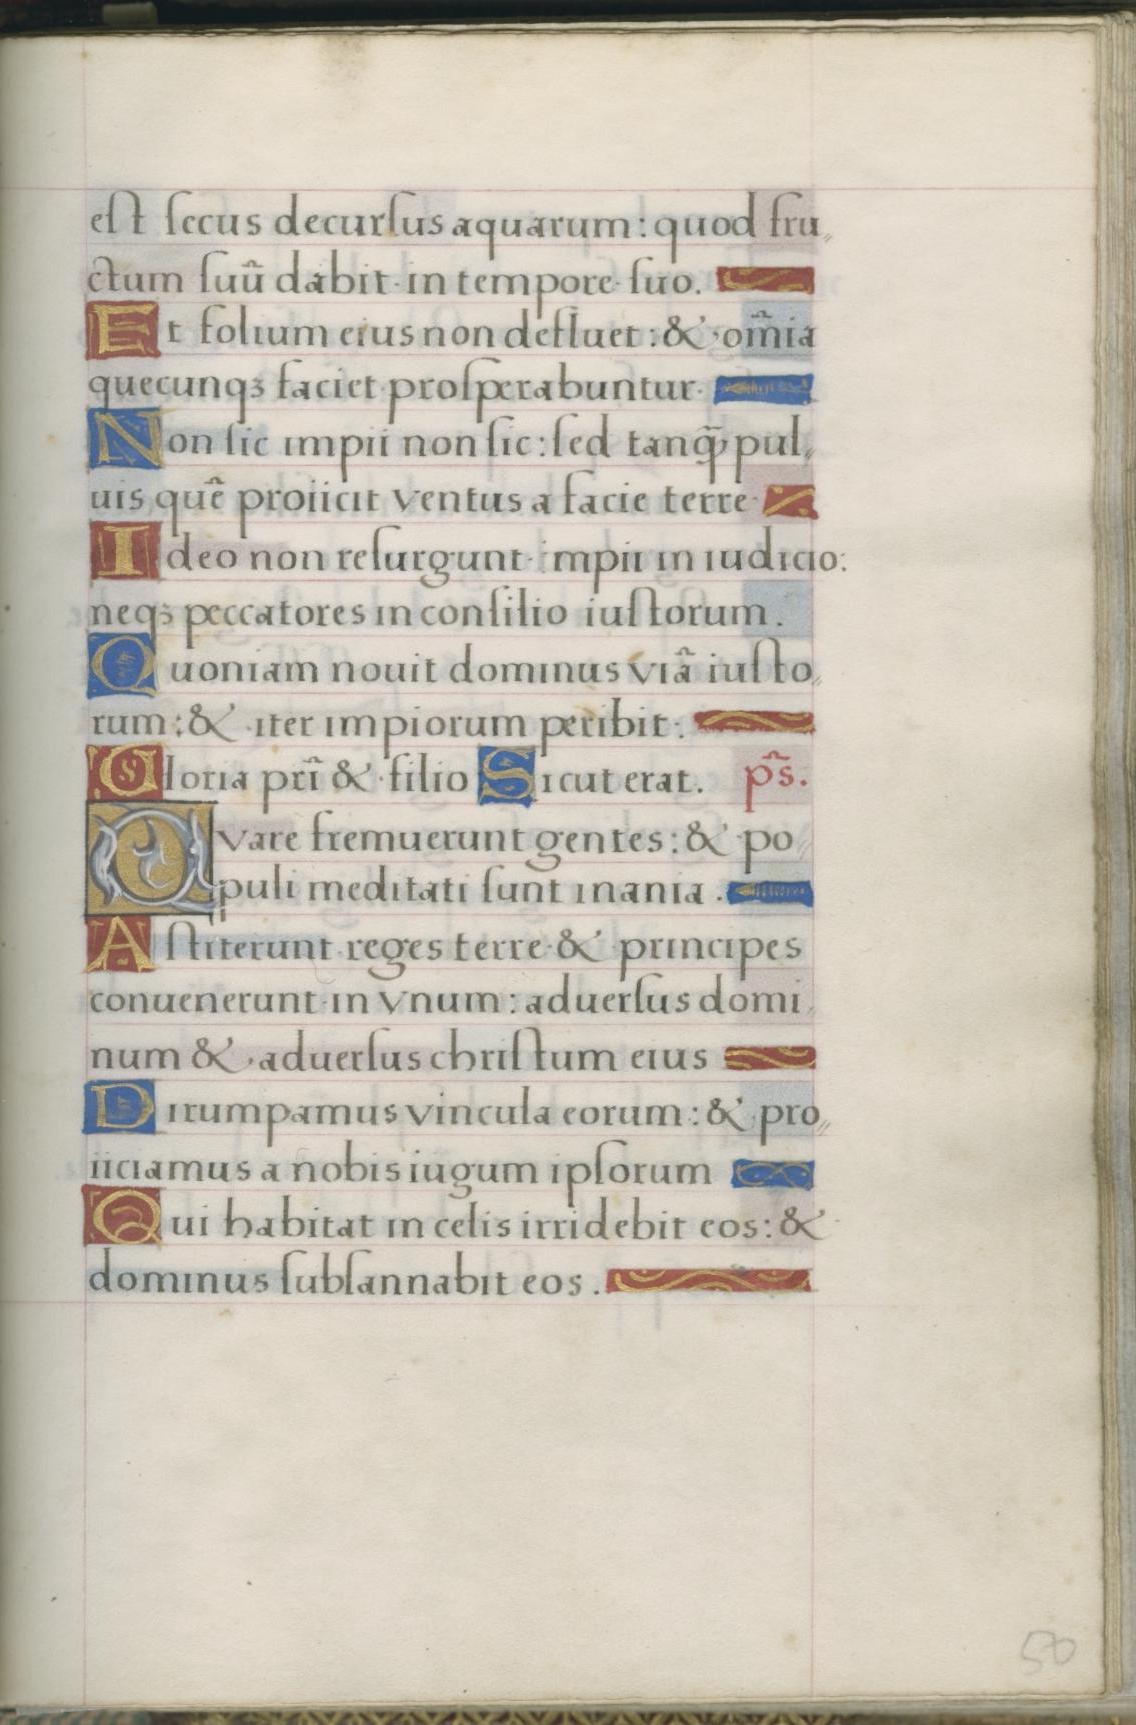 eſt ſecus decurſus aquarum: quod fru„
ctum ſuũ dabit in tempore ſuo.
Et folium eius non defluet: & om̃ia
quecunqꝫ faciet proſperabuntur.
Non ſic impii non ſic: ſed tanq̃ pul„
uis quẽ proiicit ventus a facie terre
Ideo non reſurgunt impii in iudicio:
neqꝫ peccatores in conſilio iuſtorum.
Quoniam nouit dominus viã iuſto„
rum: & iter impiorum peribit.
Gloria pr̃i & filio Sicut erat. p̃s.
Qvare fremuerunt gentes: & po„
puli meditati ſunt inania.
Aſtiterunt reges terre & principes
conuenerunt in vnum: aduerſus domi„
num & aduerſus chriſtum eius
Dirumpamus vincula eorum: & pro„
iiciamus a nobis iugum ipſorum
Qui habitat in celis irridebit eos: &
dominus ſubſannabit eos.
50